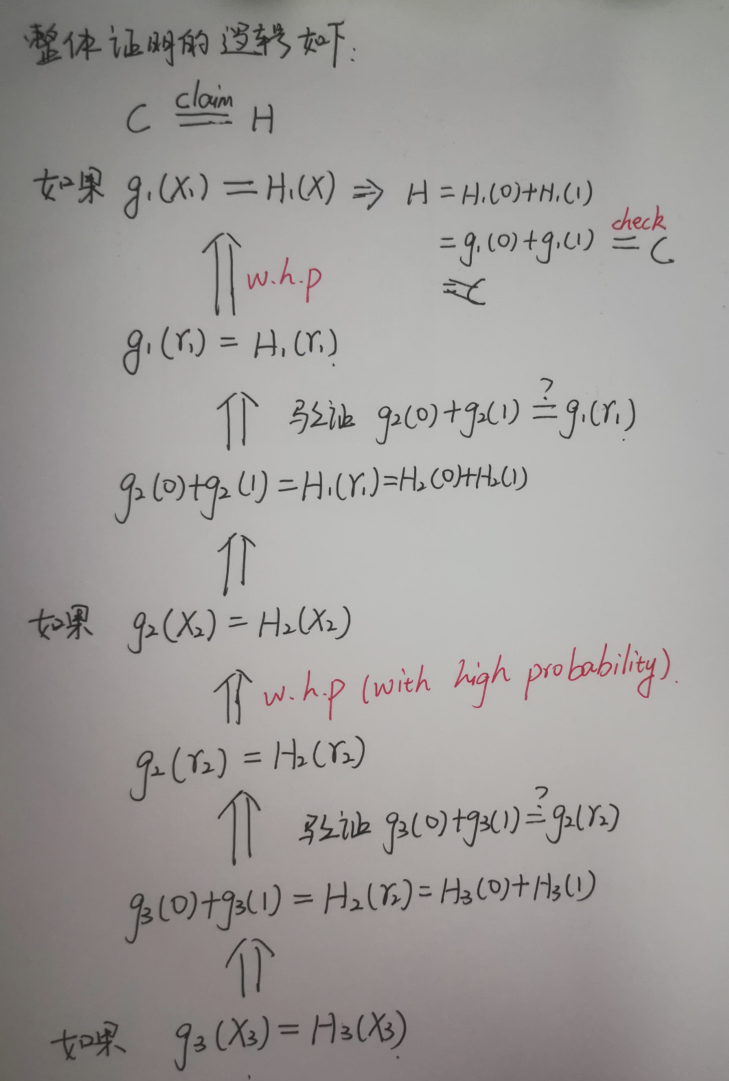 整体证明的逻辑如下:
C claim== H
如果 g₁(X₁) = H₁(X) ⇒ H = H₁(0)+H₁(1)
= g₁(0)+g₁(1) check= C
⇑ w.h.p
g₁(r₁) = H₁(r₁)
⇑ 验证 g₂(0)+g₂(1) ?= g₁(r₁)
g₂(0)+g₂(1) = H₁(r₁) = H₂(0)+H₂(1)
⇑
如果 g₂(X₂) = H₂(X₂)
⇑ w.h.p (with high probability).
g₂(r₂) = H₂(r₂)
⇑ 验证 g₃(0)+g₃(1) ?= g₂(r₂)
g₃(0)+g₃(1) = H₂(r₂) = H₃(0)+H₃(1)
⇑
如果 g₃(X₃) = H₃(X₃)